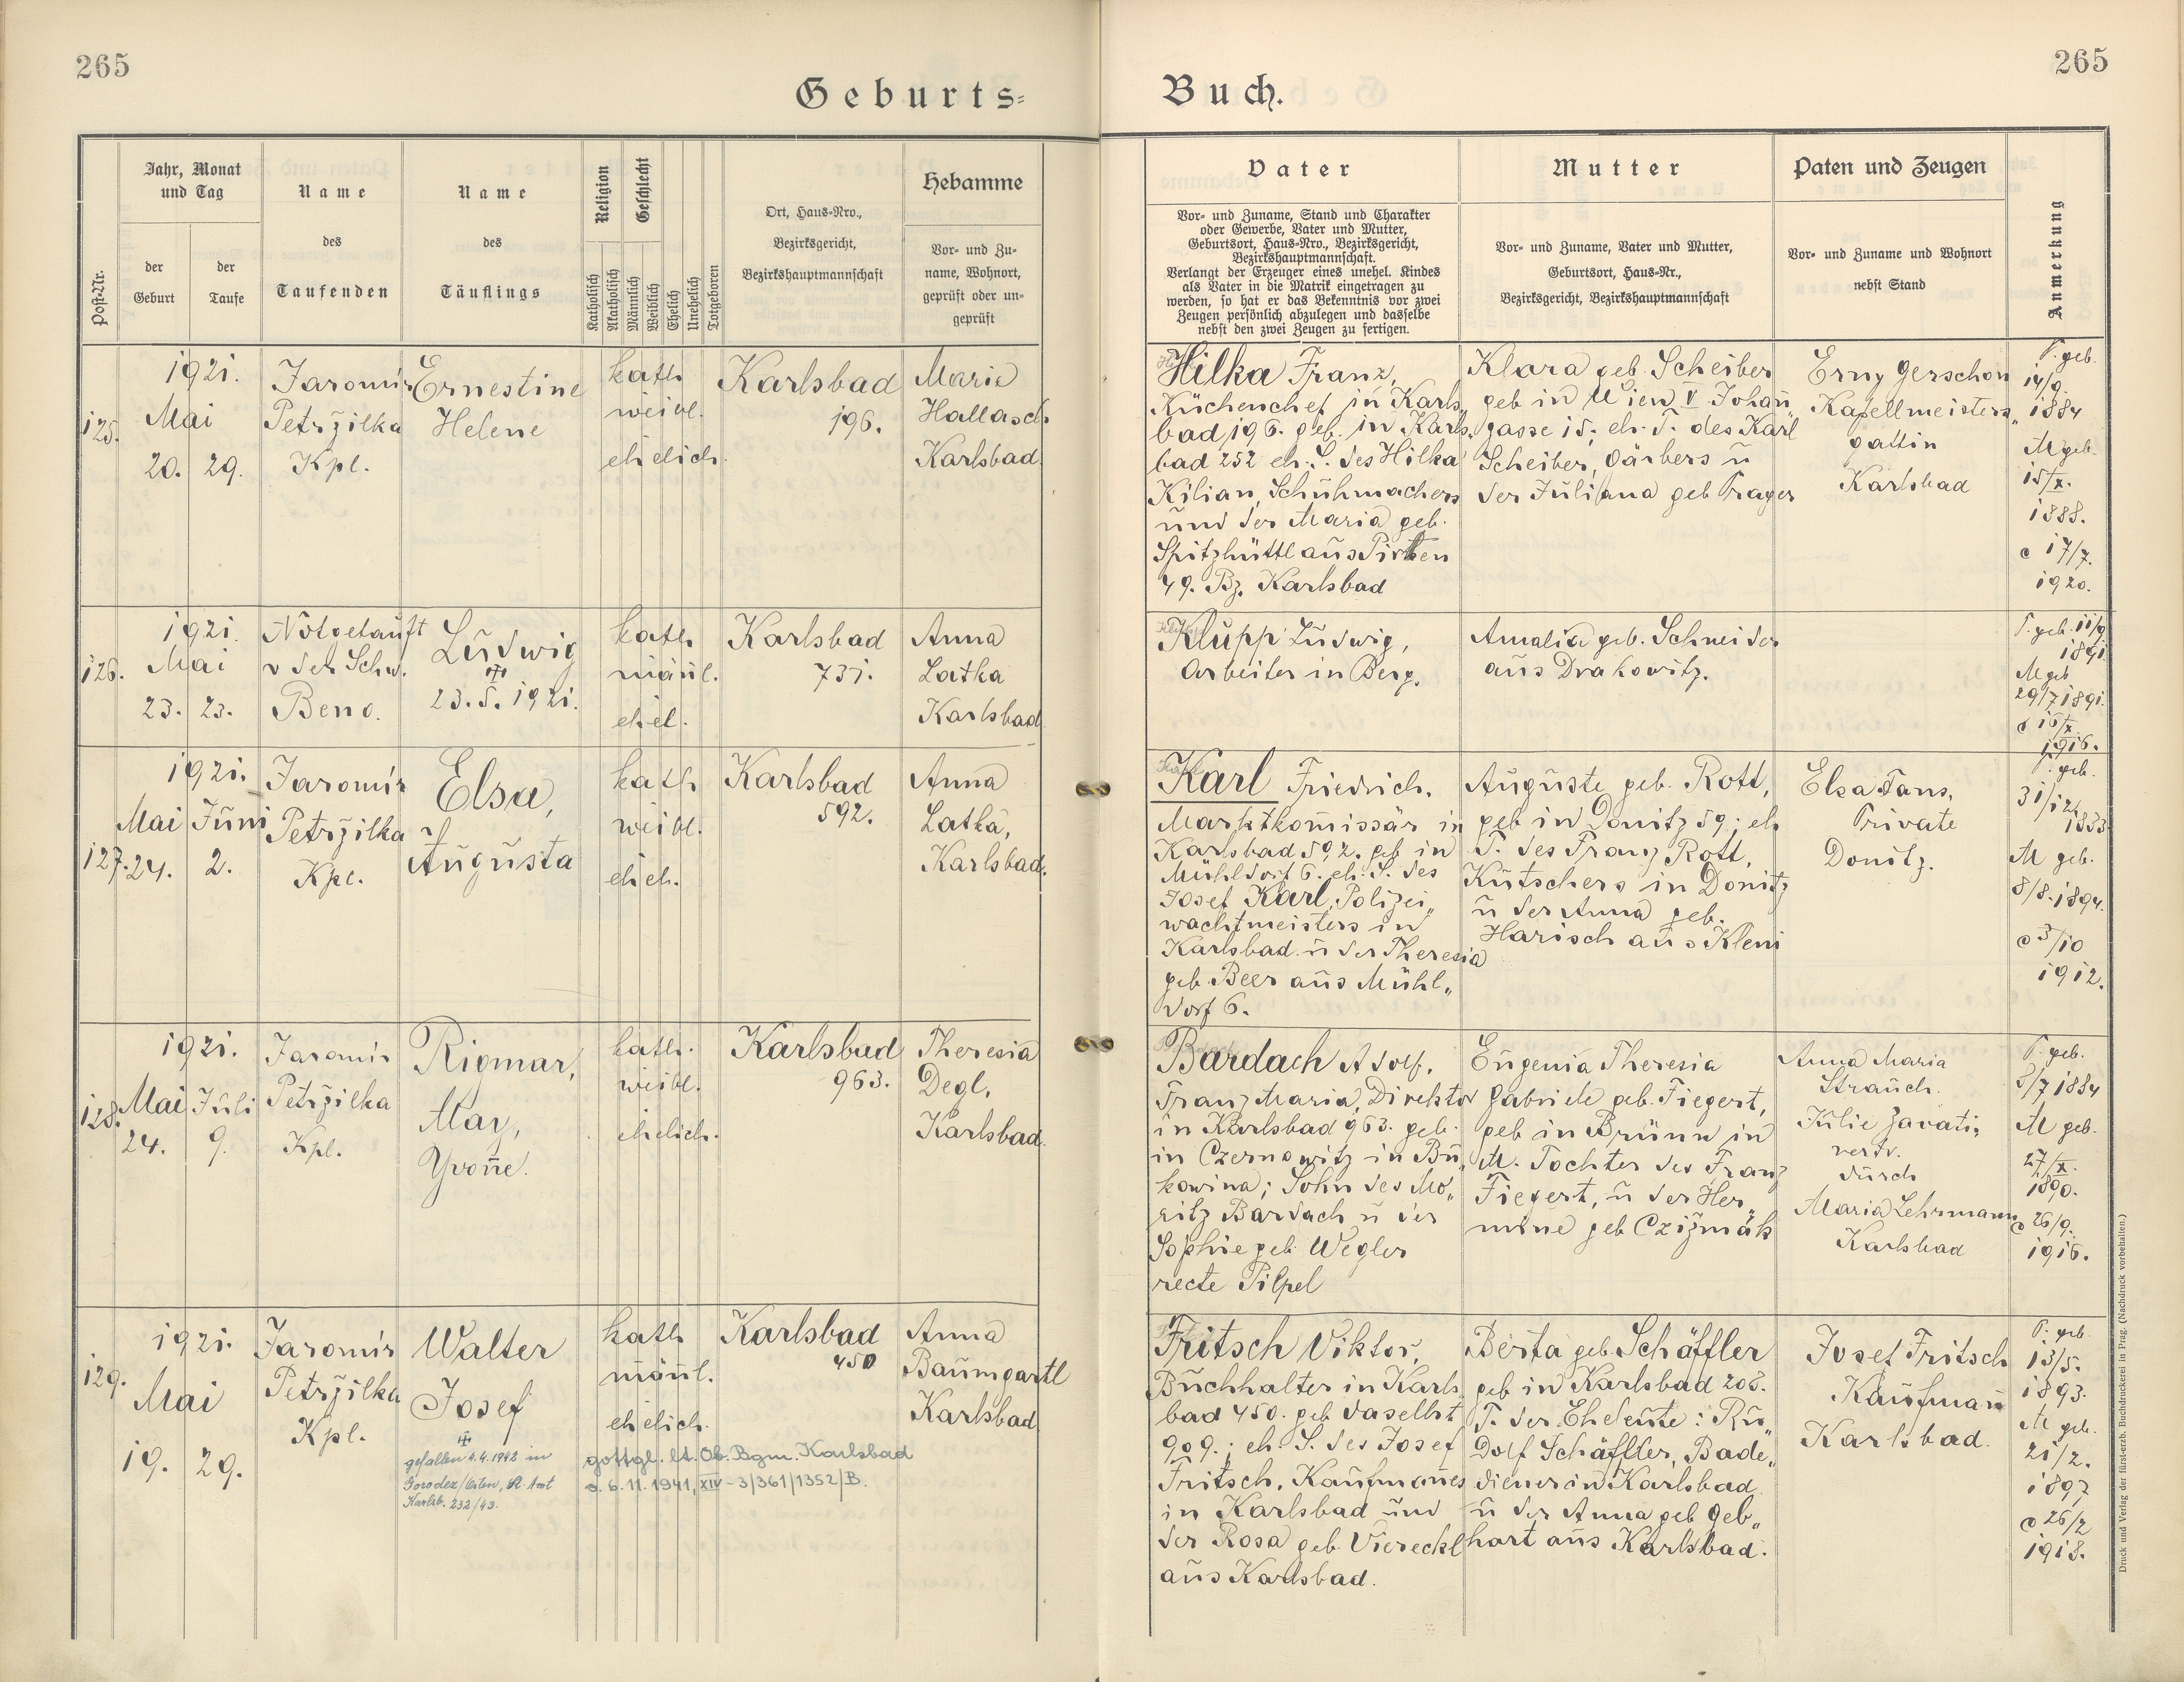 265
265
Geburts=
Buch.
Post-Nr.
Jahr, Monat
und Tag
der
Geburt
der
Taufe
Name
des
Taufenden
Name
des
Täuflings
Religion
Katholisch
Akatholisch
Geschlecht
Männlich
Weiblich
Ehelich
Unehelich
Totgeboren
Ort, Haus=Nro.,
Bezirksgericht,
Bezirkshauptmannschaft
Hebamme
Vor= und Zu=
name, Wohnort,
geprüft oder un=
geprüft
Vater
Vor= und Zuname, Stand und Charakter
oder Gewerbe, Vater und Mutter,
Geburtsort, Haus=Nro., Bezirksgericht,
Bezirkshauptmannschaft.
Verlangt der Erzeuger eines unehel. Kindes
als Vater in die Matrik eingetragen zu
werden, so hat er das Bekenntnis vor zwei
Zeugen persönlich abzulegen und dasselbe
nebst den zwei Zeugen zu fertigen.
Mutter
Vor= und Zuname, Vater und Mutter,
Geburtsort, Haus=Nr.,
Bezirksgericht, Bezirkshauptmannschaft
Paten und Zeugen
Vor= und Zuname und Wohnort
nebst Stand
Anmerkung
125.
1921.
Mai
20. 29.
Jaromir
Petržilka
Kpl.
Ernestine
Helene
kath
weibl.
ehelich.
Karlsbad
196.
Marie
Hallasch
Karlsbad.
Hilka Franz,
Küchenchef in Karls„
bad 196. geb. in Karls„
bad 252 eh. S. des Hilka
Kilian, Schuhmachers
und der Maria geb.
Spitzhüttl aus Pirken
49. Bz. Karlsbad
Klara geb. Scheiber
geb in Wien V Johañ„
gasse 15; eh. T. des Karl
Scheiber, Gärbers u
der Juliana geb Prager
Erny Gerschon
Kapellmeisters„
gattin
Karlsbad
V. geb.
14/9.
1884
M geb.
15/X.
1888.
c 17/7.
1920.
126.
1921.
Mai
23. 23.
Notgetauft
v der Schw.
Beno.
Ludwig
✝
23.5.1921.
kath
mäñl.
ehel.
Karlsbad
731.
Anna
Latka
Karlsbad
Klupp Ludwig,
Arbeiter in Berg.
Amalia geb. Schneider
aus Drakowitz.
V. geb. 11/9
1891.
M geb
29/7 1891.
c 16/X.
1916.
127.
1921.
Mai Juni
24. 2.
Jaromir
Petržilka
Kpl.
Elsa,
Augusta
kath
weibl.
ehel.
Karlsbad
592.
Anna
Latka,
Karlsbad.
Karl Friedrich.
Marktkom̃issär in
Karlsbad 592. geb in
Mühldorf 6. eh. S. des
Josef Karl, Polizei„
wachtmeisters in
Karlsbad u der Theresia
geb. Beer aus Mühl„
dorf 6.
Auguste geb. Rott,
geb in Donitz 59; eh
T. des Franz Rott,
Kutschers in Donitz
u der Anna geb.
Harisch aus Klein
Elsa Fans,
Private
Donitz.
V. geb.
31/12.
1883
M geb.
8/8.1894.
c 3/10
1912.
128.
1921.
Mai Juli
24. 9.
Jaromir
Petržilka
Kpl.
Rigmar,
May,
Yvoñe.
kath.
weibl.
ehelich.
Karlsbad
963.
Theresia
Degl,
Karlsbad.
Bardach Adolf,
Franz Maria, Direktor
in Karlsbad 963. geb.
in Czernowitz in Bu„
kowina; Sohn des Mo„
ritz Bardach u der
Sophie geb. Wegler
recte Pilpel
Eugenia Theresia
Gabriele geb. Fiegert,
geb in Brünn in
M. Tochter des Franz
Fiegert, u der Her„
mine geb Czižmák
Anna Maria
Strauch.
Julie Zavati,
vertr.
durch
Maria Lehrmann
Karlsbad
V. geb.
5/7 1884
M geb.
27/X.
1890.
c 26/9.
1916.
129.
1921.
Mai
19. 29.
Jaromir
Petržilka
Kpl.
Walter
Josef
✝
gefallen 4.4.1942 in
Gorodez/Osten, St. Amt
Karlsb. 232/43.
kath
mäñl.
ehelich.
gottgl. lt. Ob. Bgm. Karlsbad
v. 6.11.1941, XIV-3/361/1352/B.
Karlsbad
450
Anna
Baumgartl
Karlsbad
Fritsch Viktor,
Buchhalter in Karls„
bad 450. geb daselbst
909.; eh. S. des Josef
Fritsch, Kaufmañes
in Karlsbad und
der Rosa geb. Viereckl
aus Karlsbad.
Berta geb. Schäffler
geb in Karlsbad 208.
T. der Eheleute: Ru„
dolf Schäffler, Bade„
diener in Karlsbad
u der Anna geb Geb„
hart aus Karlsbad.
Josef Fritsch
Kaufmañ
Karlsbad.
V. geb.
13/5.
1893.
M geb.
21/2.
1897
c 26/2
1918.
Druck und Verlag der fürst-erzb. Buchdruckerei in Prag. (Nachdruck vorbehalten.)